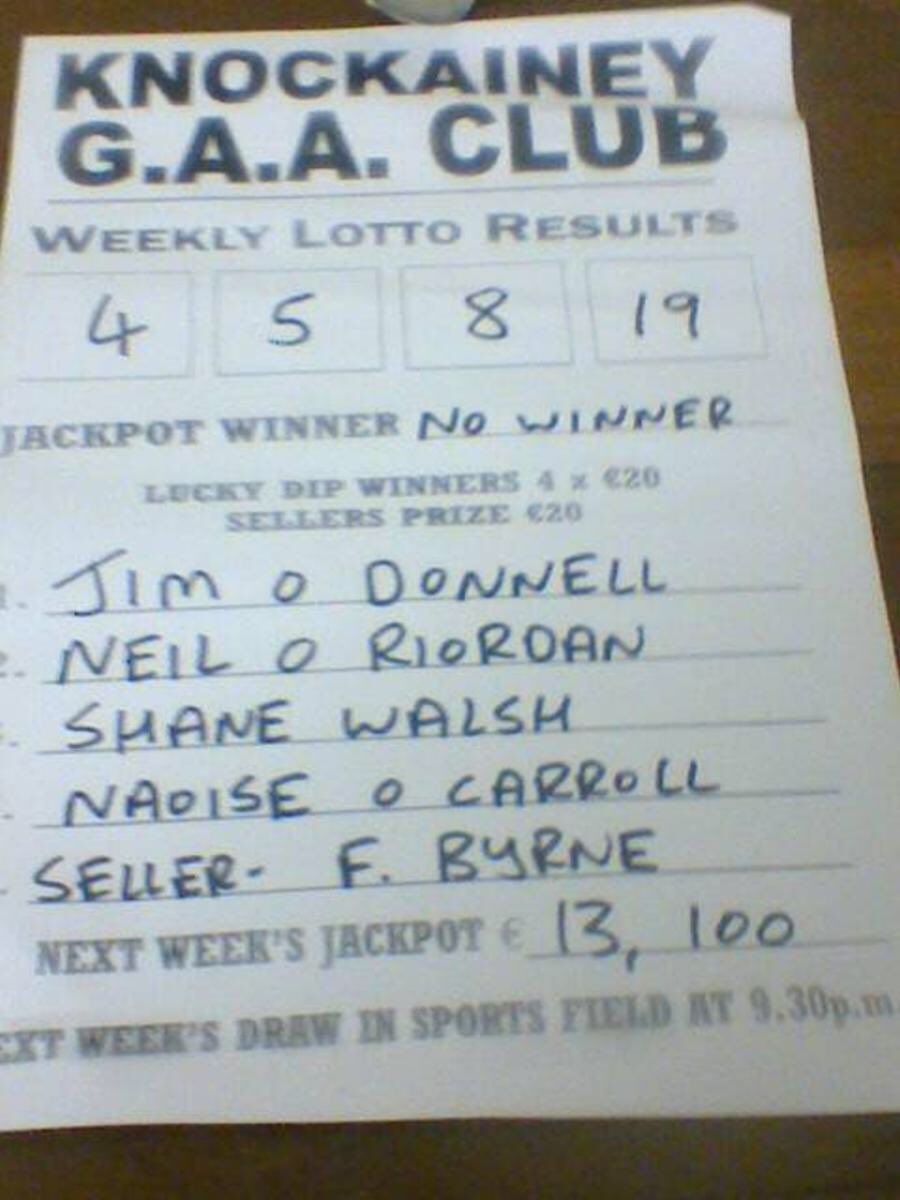 KNOCKAINEY
G.A.A. CLUB
WEEKLY LOTTO RESULTS
4 5 8 19
JACKPOT WINNER NO WINNER
LUCKY DIP WINNERS 4 x €20
SELLERS PRIZE €20
1. JIM O DONNELL
2. NEIL O RIORDAN
SHANE WALSH
NAOISE O CARROLL
SELLER- F. BYRNE
NEXT WEEK'S JACKPOT € 13, 100
EXT WEEK'S DRAW IN SPORTS FIELD AT 9.30p.m.